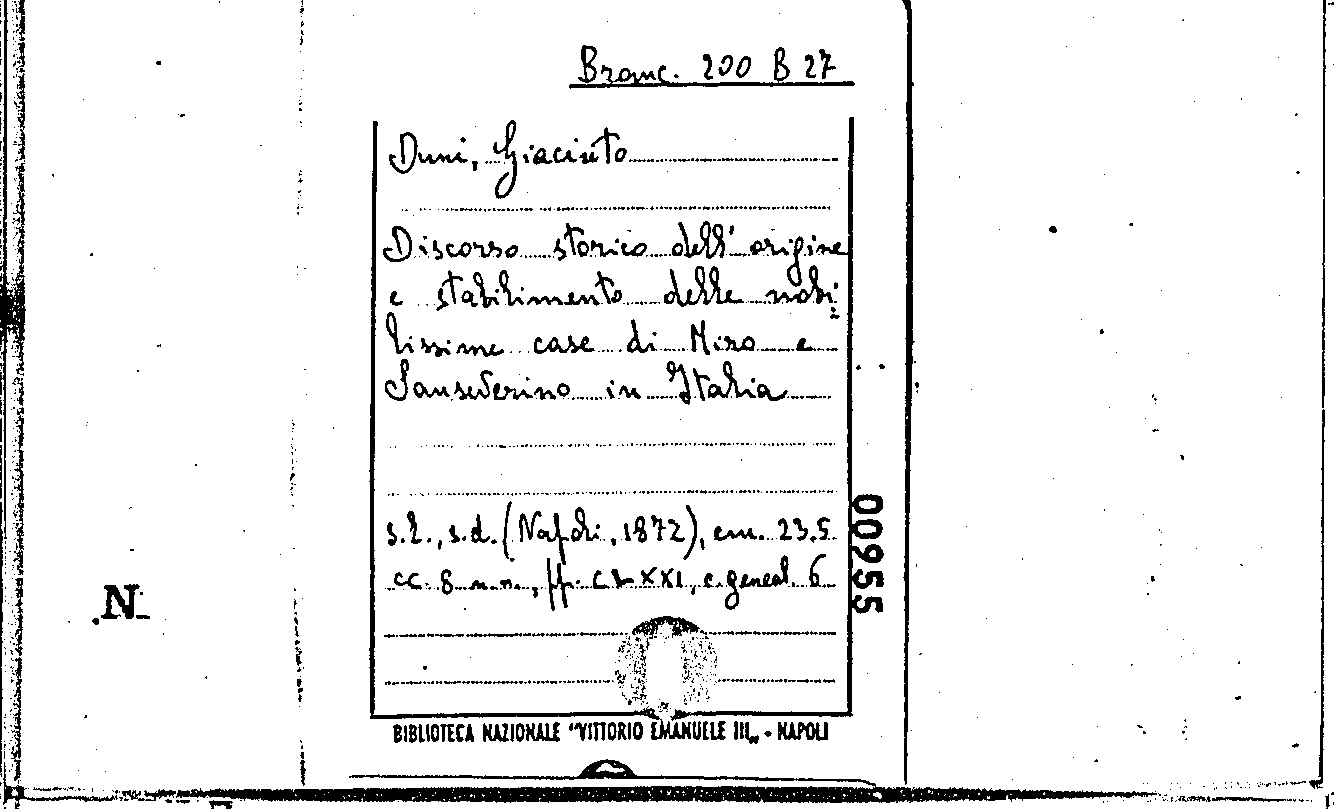 Branc. 200 B 27
Duni, Giacinto
Discorso storico dell'origine
e stabilimento delle nobi=
lissime case di Miro e
Sanseverino in Italia
s.l., s.d. (Napoli, 1872), cm. 23.5
cc. 8 n.n., pp. CLXXI, c. geneal. 6
00955
.N.
BIBLIOTECA NAZIONALE "VITTORIO EMANUELE III„ - NAPOLI